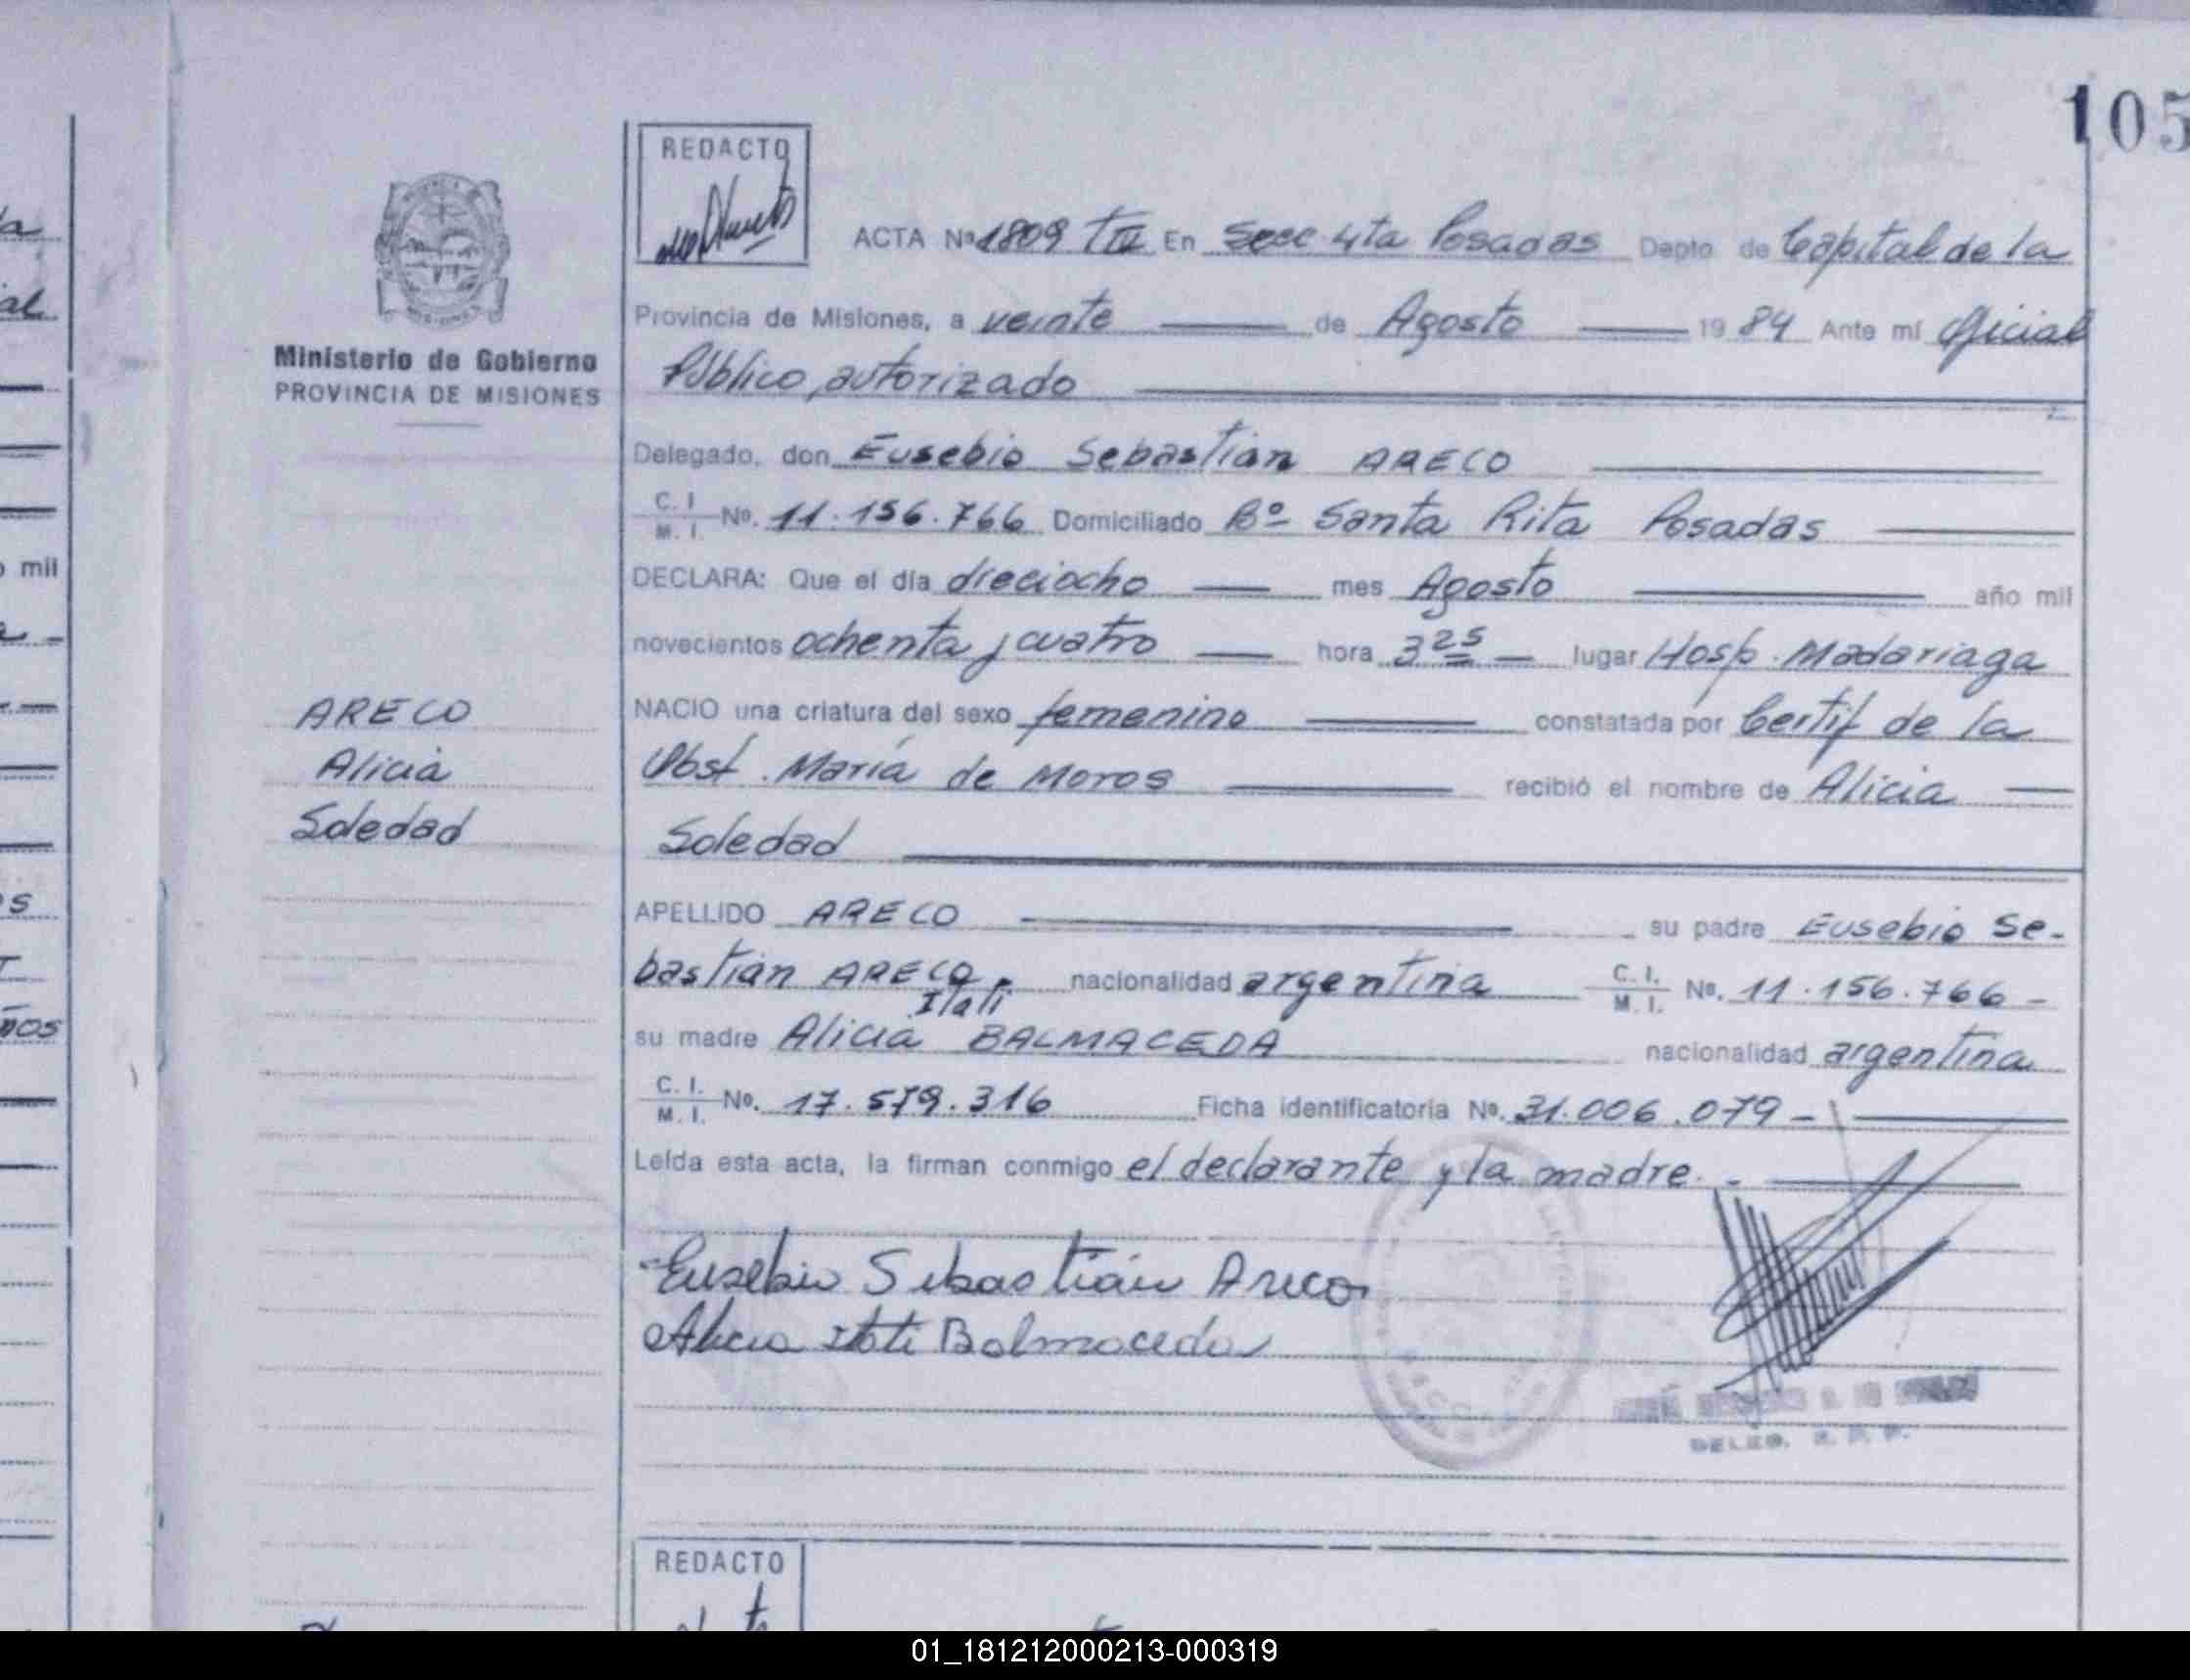 105
REDACTO
ACTA Nº 1809 TIV En Secc 4ta Posadas Depto de Capital de la
Provincia de Misiones, a veinte de Agosto 1984 Ante mí Oficial
Público autorizado
Ministerio de Gobierno
PROVINCIA DE MISIONES
Delegado, don Eusebio Sebastian ARECO
C. I. M. I. Nº. 11.156.766 Domiciliado Bº Santa Rita Posadas
DECLARA: Que el día dieciocho mes Agosto año mil
novecientos ochenta y cuatro hora 3 25 lugar Hosp. Madariaga
ARECO
NACIO una criatura del sexo femenino constatada por Certif de la
Alicia
Obst. María de Moros recibió el nombre de Alicia
Soledad
Soledad
APELLIDO ARECO su padre Eusebio Se-
bastian ARECO nacionalidad argentina C. I. M. I. Nº. 11.156.766 -
Itatí
su madre Alicia BALMACEDA nacionalidad argentina
C. I. M. I. Nº. 17.579.316 Ficha identificatoria Nº. 31.006.079 -
Leída esta acta, la firman conmigo el declarante y la madre. -
Eusebio Sebastián Areco
Alicia Itati Balmaceda
DELEG. R. P. P.
REDACTO
01_181212000213-000319